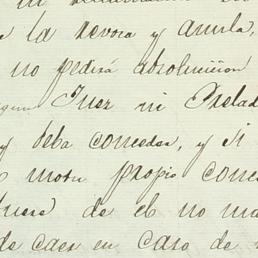 la revoca y anula,
no pedirá absolucion
Juez ni Prelad
y deba conceder, y si
motu propio conce
fuese de el no
de caer en caso de